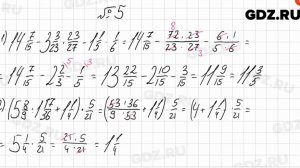 №5
GDZ.RU
1) 14 7/15 - 2 3/23 · 23/27 - 1 1/5 · 1/6 = 14 7/15 - 72·23/23·27 - 6·1/5·6 =
= 14 7/15 - 2 2/3 - 1/5 = 13 22/15 - 2 10/15 - 3/15 = 11 9/15 = 11 3/5
2) (5 8/9 · 1 17/36 + 1 1/4) · 5/21 = (53·36/9·53 + 1 1/4) · 5/21 = (4 + 1 1/4) · 5/21 =
= 5 1/4 · 5/21 = 21·5/4·21 = 1 1/4
GDZ.RU